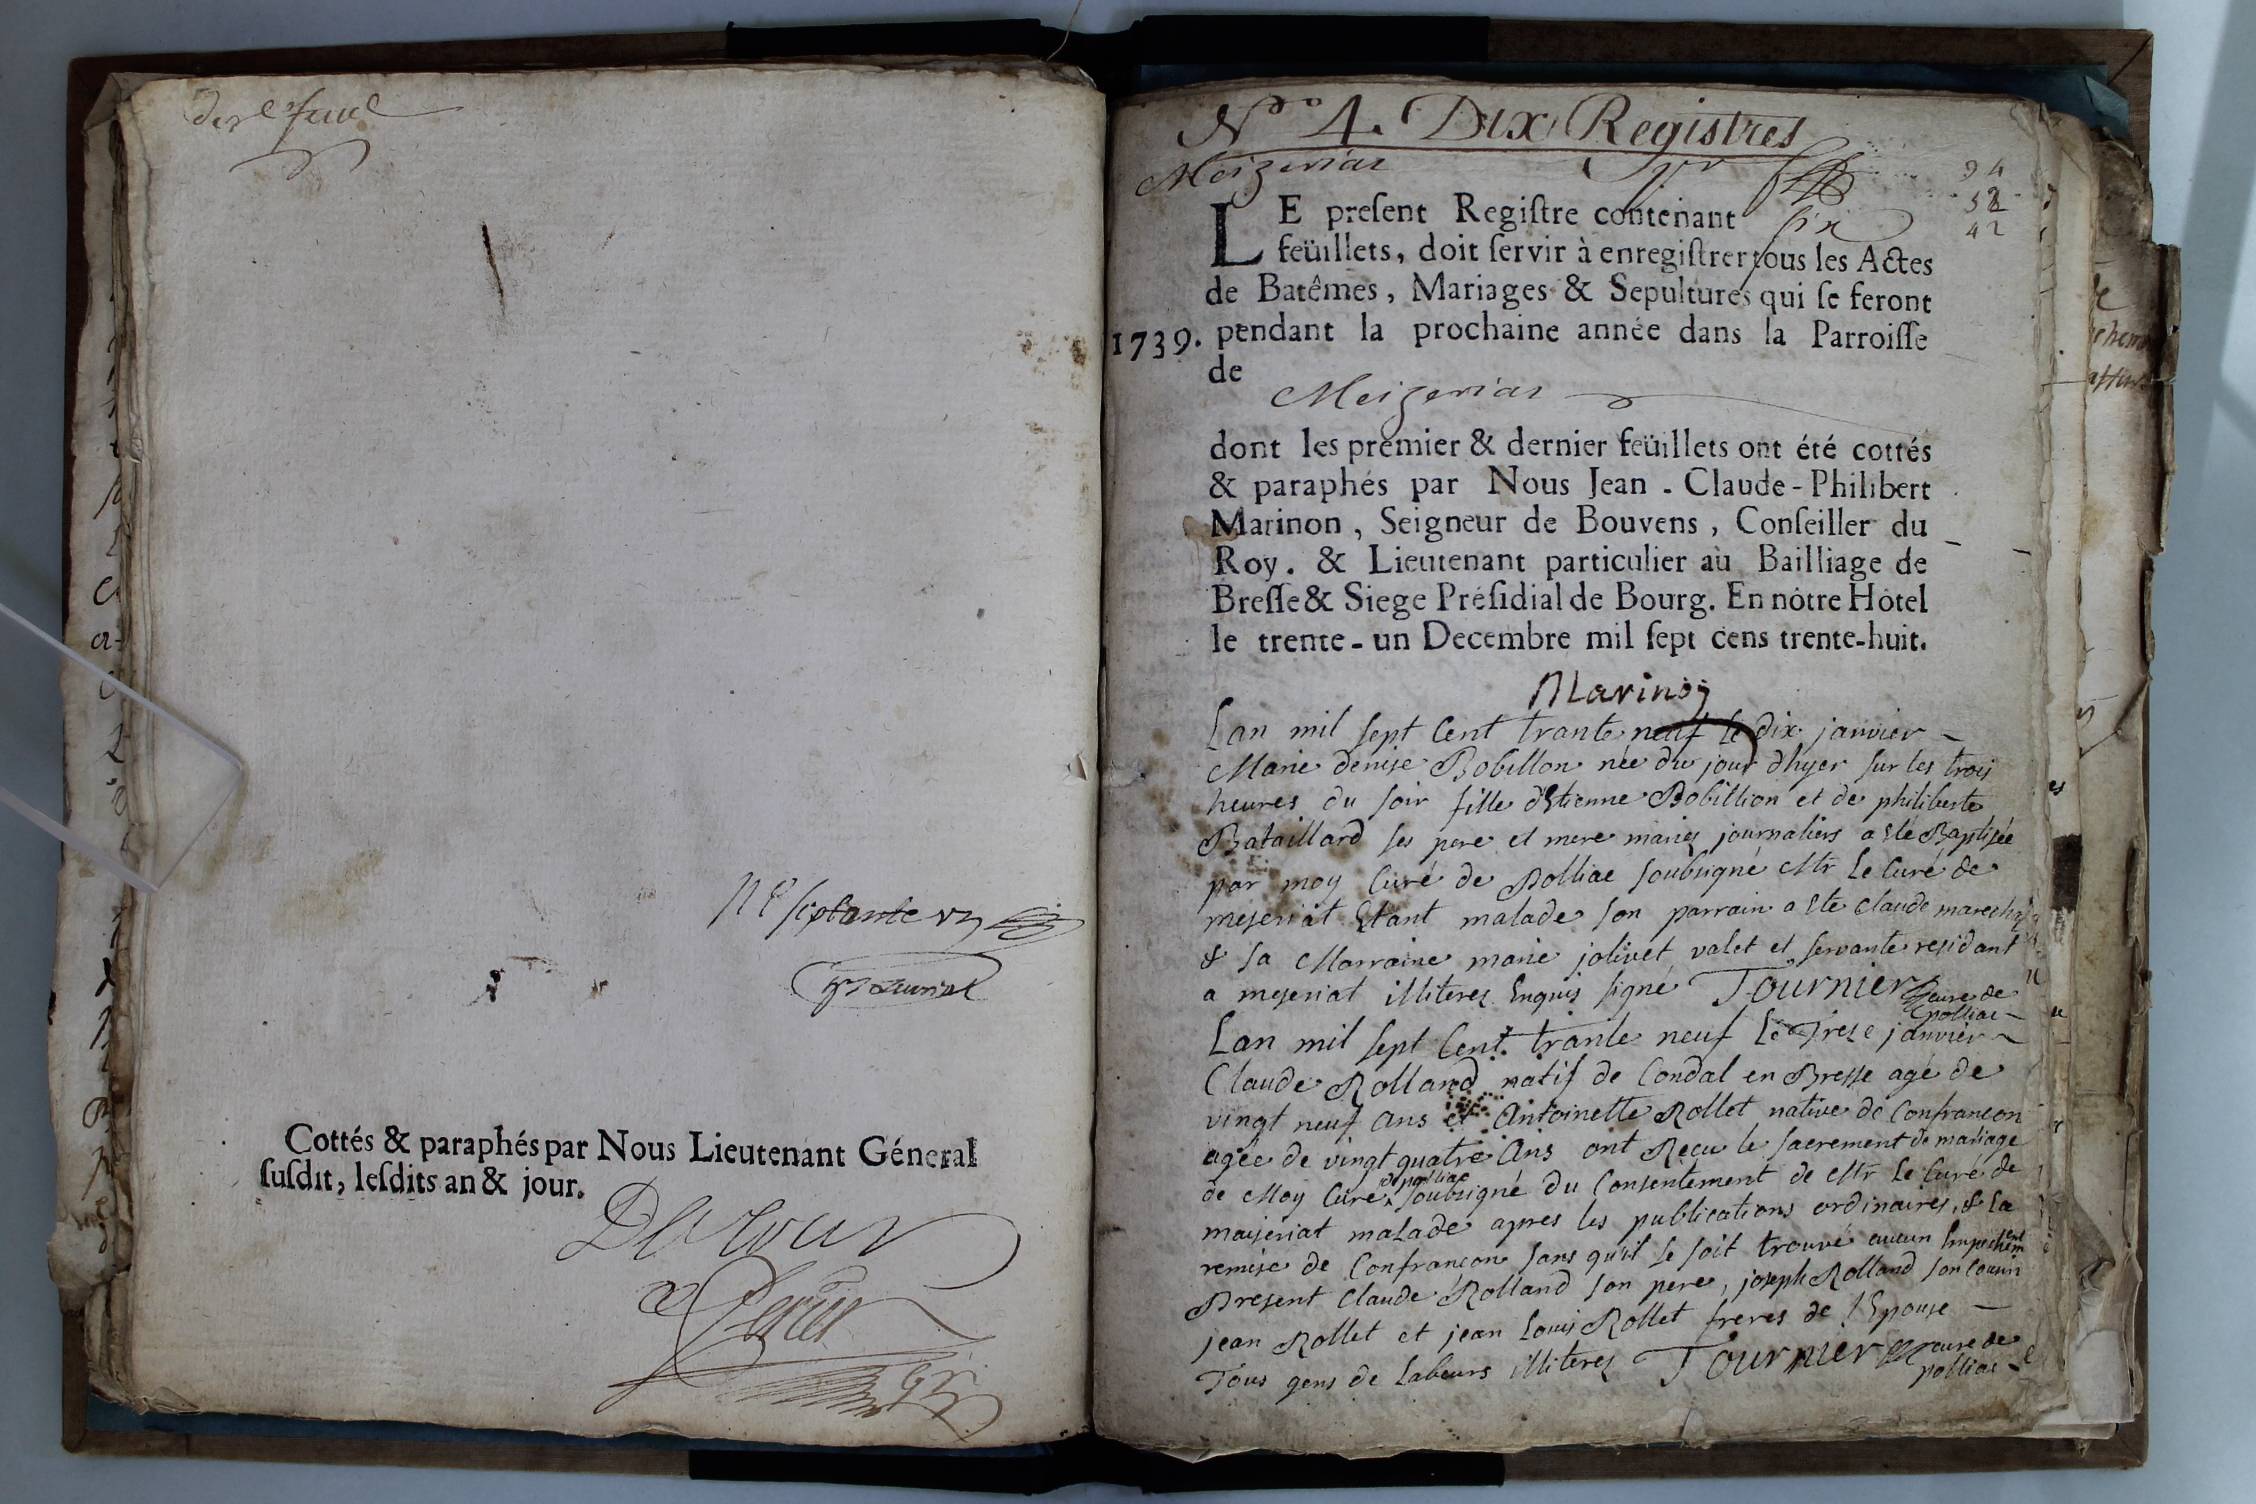 Cottés & paraphés par Nous Lieutenant Géneral
suſdit, leſdits an & jour.
N° 4. Dix Registres
Meizeriat
94
52
42
LE preſent Regiſtre contenant six
feüillets, doit ſervir à enregiſtrer tous les Actes
de Batêmes, Mariages & Sepultures qui ſe feront
1739. pendant la prochaine année dans la Parroiſſe
de
Meizeriat
dont les premier & dernier feüillets ont été cottés
& paraphés par Nous Jean - Claude - Philibert
Marinon, Seigneur de Bouvens, Conſeiller du
Roy. & Lieutenant particulier au Bailliage de
Breſſe & Siege Préſidial de Bourg. En nôtre Hôtel
le trente - un Decembre mil ſept cens trente-huit.
Marinon
Lan mil sept Cent trante neuf le dix janvier
Marie denise Bobillon née du jour dhyer sur les trois
heures du soir fille d'Etienne Bobillion et de philiberte
Bataillard ses pere et mere mariés journaliers a été Baptisée
par moy Curé de Polliac soubsigné Mr Le Curé de
meseriat Etant malade son parrain a ete claude marechal
& sa Marraine marie jolivet valet et servante residant
a meseriat illiterez Enquis signé Tournier cure de
polliac
Lan mil sept Cent trante neuf Le Treze janvier
Claude Rolland natif de Condal en Bresse agé de
vingt neuf ans et Antoinette Rollet native de Confrancon
agée de vingt quatre Ans ont Reçu le sacrement de mariage
de Moy Curé de polliac soubsigné du Consentement de Mr Le Curé de
maiseriat malade apres les publications ordinaires, & La
remise de Confrancon sans qu'il se soit trouvé aucun Empechement
Present Claude Rolland son pere, joseph Rolland son Cousin
jean Rollet et jean Louis Rollet freres de l'Epouse
Tous gens de Labeurs illiterez Tournier cure de
polliac